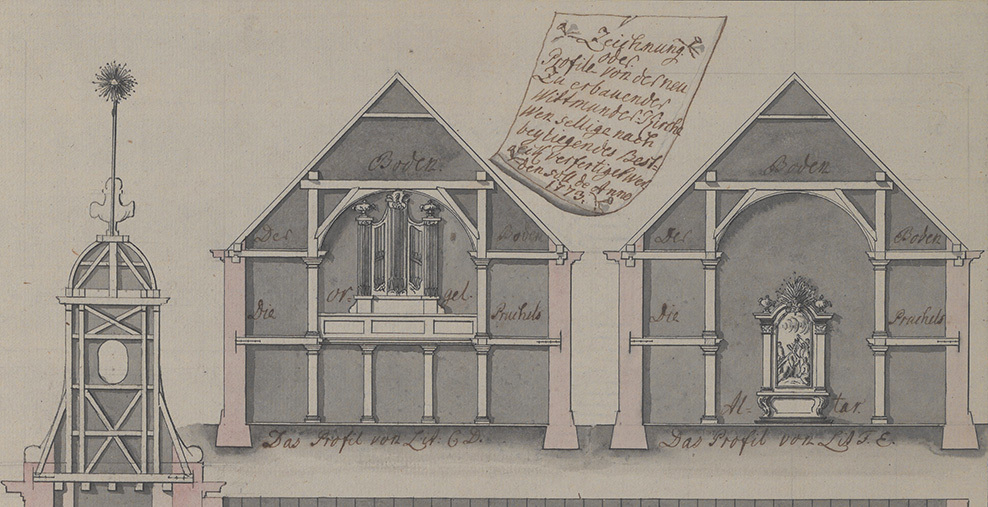 Zeichnung
oder
Profile von der neu
Zu erbauender
Wittmunder Kirche
Wen selbige nach
beyliegendes Best-
eck Verfertiget wer
den soll de Anno
1773.
Boden.
Der Boden
Or- gel.
Die Priechels
Das Profil von Lit: C D.
Boden
Der Boden
Die Priechels
Al- tar.
Das Profil von Lit F. E.